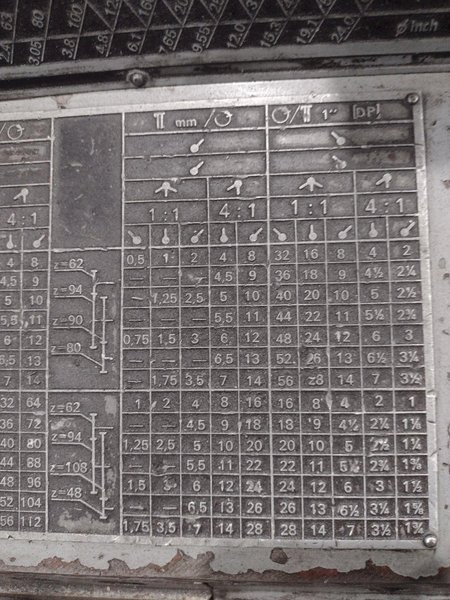 2.4 3.8 6.1 7.65 9.55 12.0 15.3 19.1 24.0
3.05 Ø inch
mm / 1" DP
4:1 1:1 4:1 1:1 4:1
4 8 z=62 0,5 1 2 4 8 32 16 8 4 2
4,5 9 — — — 4,5 9 36 18 9 4½ 2¼
5 10 z=94 — 1,25 2,5 5 10 40 20 10 5 2½
5,5 11 z=90 — — — 5,5 11 44 22 11 5½ 2¾
6 12 0,75 1,5 3 6 12 48 24 12 6 3
6,5 13 z=80 — — — 6,5 13 52 26 13 6½ 3¼
7 14 — 1,75 3,5 7 14 56 28 14 7 3½
32 64 z=62 1 2 4 8 16 16 8 4 2 1
36 72 — — 4,5 9 18 18 9 4½ 2¼ 1⅛
40 80 z=94 1,25 2,5 5 10 20 20 10 5 2½ 1¼
44 88 — — 5,5 11 22 22 11 5½ 2¾ 1⅜
48 96 z=108 1,5 3 6 12 24 24 12 6 3 1½
52 104 z=48 — — 6,5 13 26 26 13 6½ 3¼ 1⅝
56 112 1,75 3,5 7 14 28 28 14 7 3½ 1¾